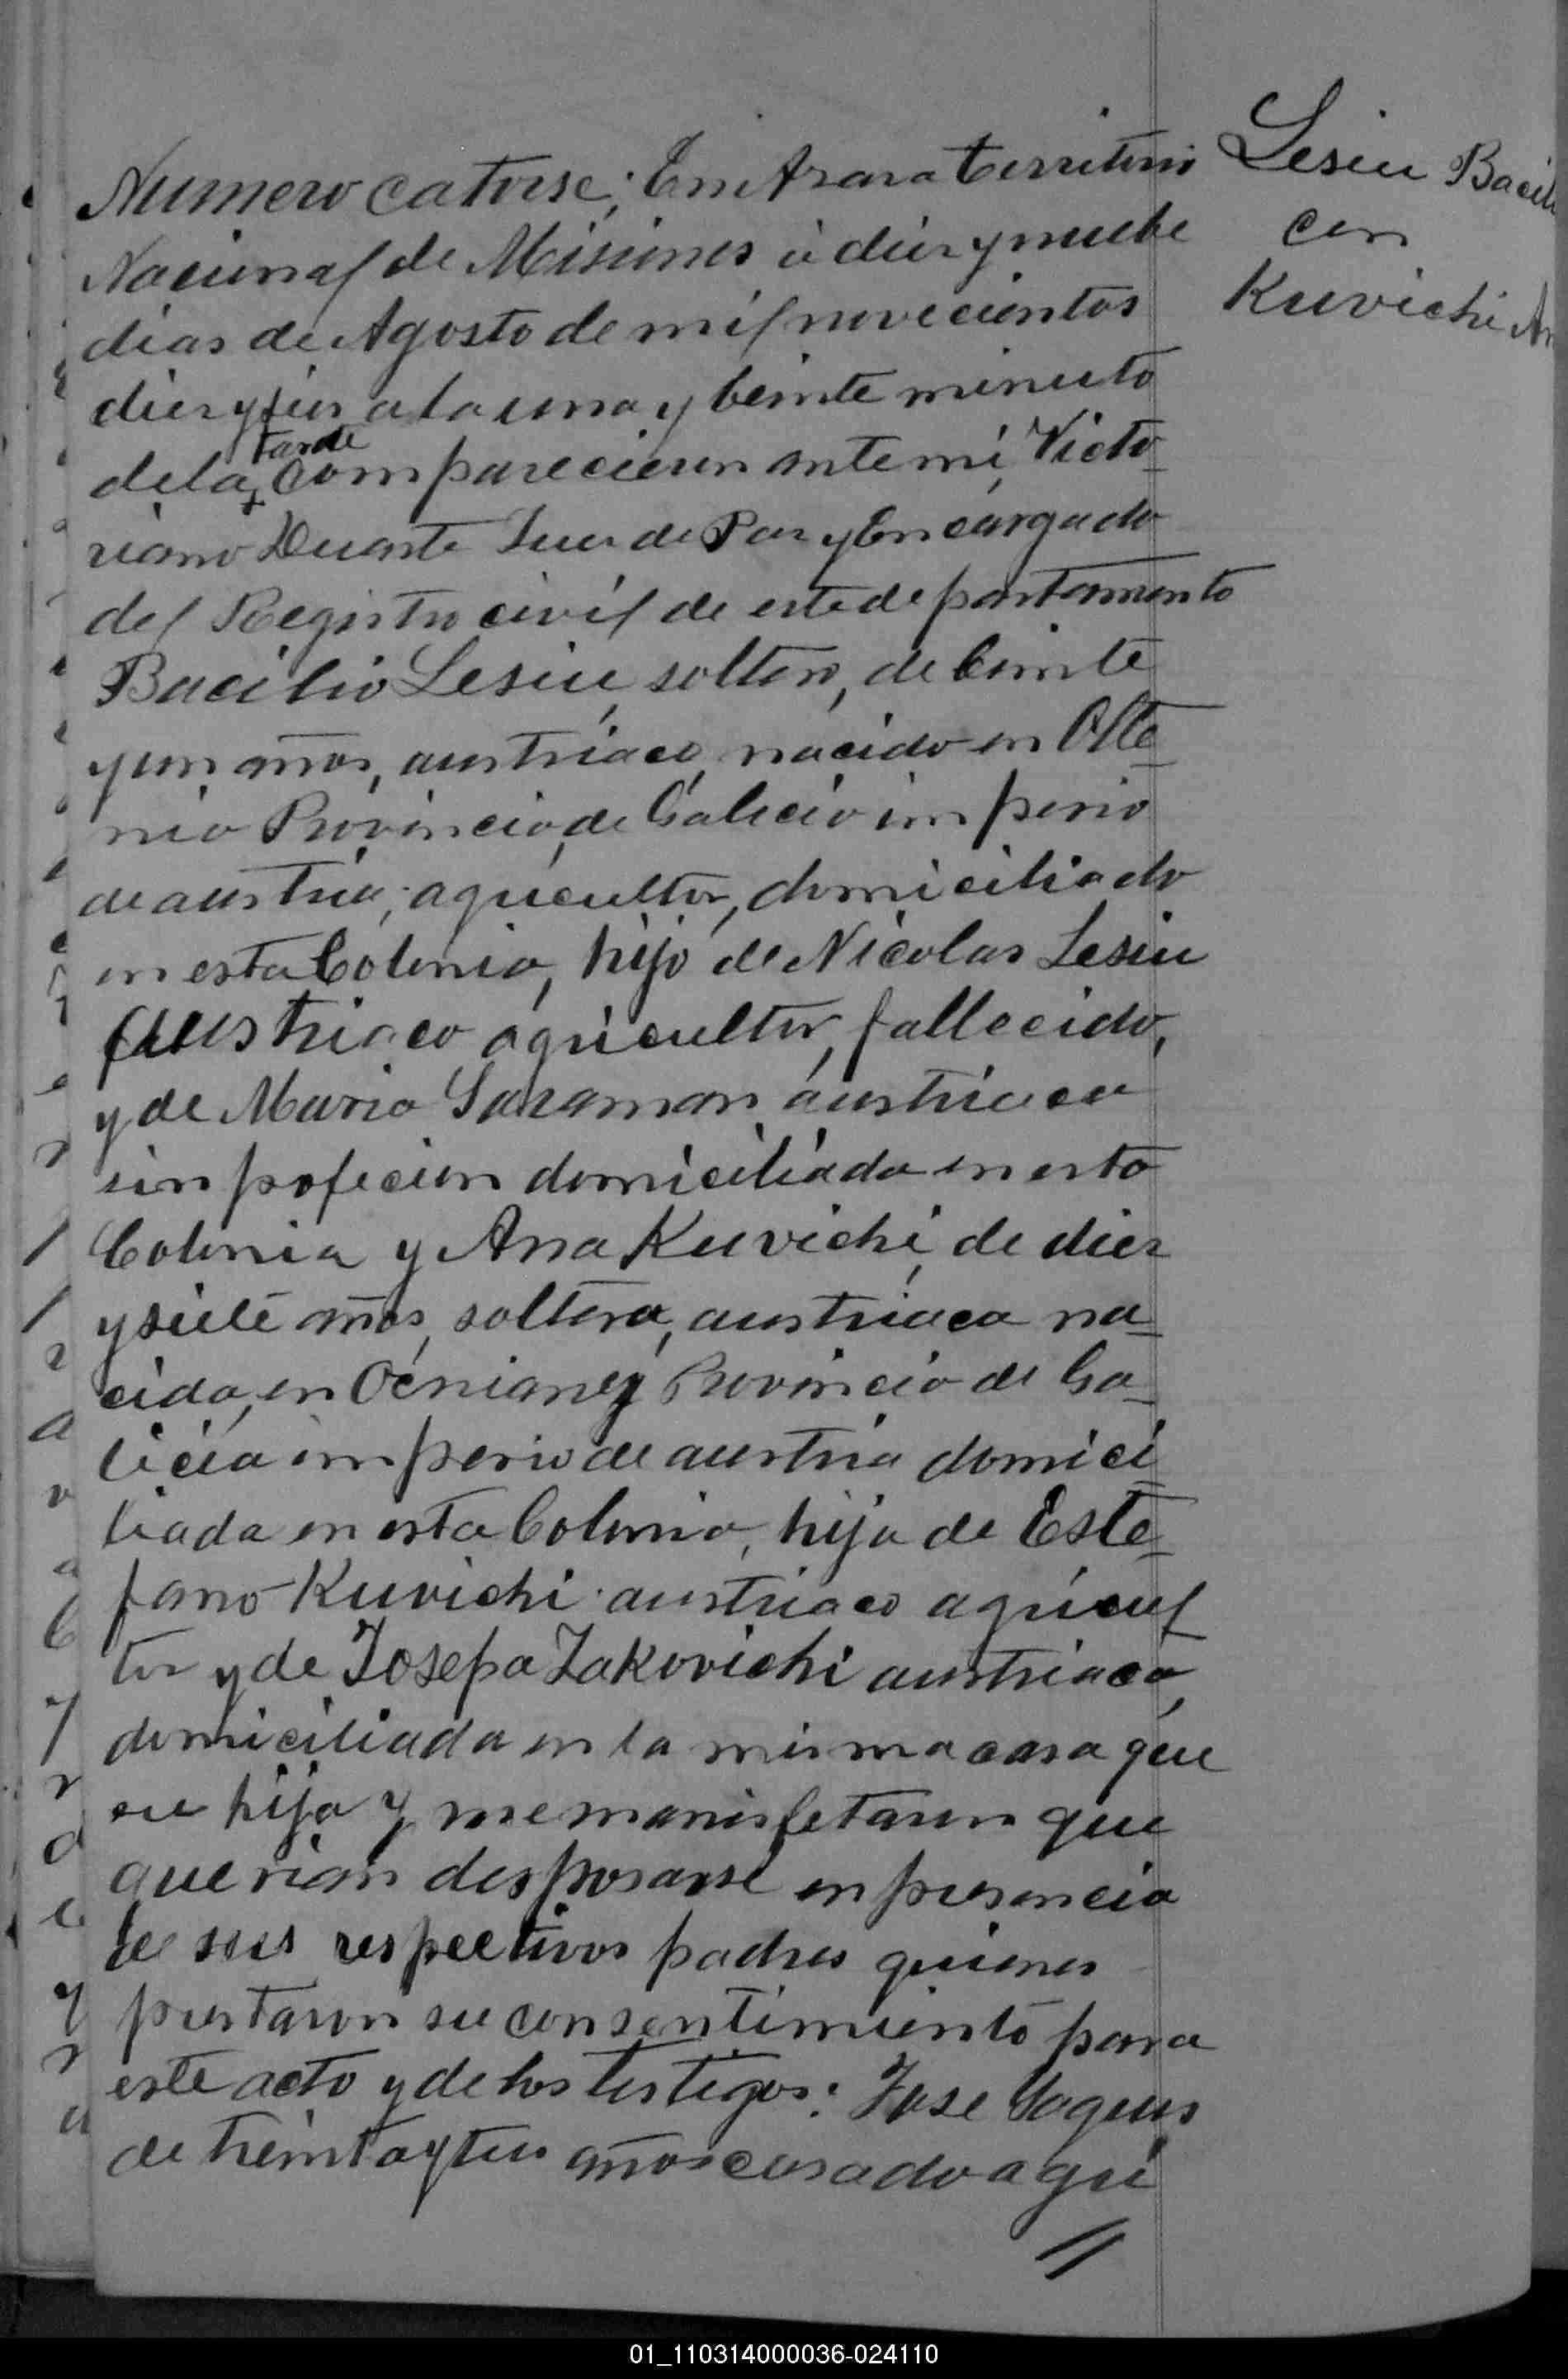 Lesiu Bacili
con
Kuvichi An
Numero catorse; En Azara territorio
Nacional de Misiones á diez y nuebe
dias de Agosto de mil novecientos
diez y seis a la una y beinte minuto
de la tarde comparecieron ante mi, Victo-
riano Duarte Juez de Paz y Encargado
del Registro civil de este departamento
Bacilio Lesiu, soltero, de beinte
y un años, austríaco, nacido en Otte-
nia Provincia de Galicia imperio
de austria, agricultor, domiciliado
en esta Colonia, hijo de Nicolas Lesiu
austriaco agricultor, fallecido,
y de Maria austriaca
sin profecion domiciliada en esta
Colonia y Ana Kuvichi, de diez
y siete años, soltera, austriaca na-
cida, en Provincia de Ga-
licia imperio de austria domici-
liada en esta Colonia, hija de Este-
fano Kuvichi austriaco agricul-
tor y de Josepa Zakovichi austriaca,
domiciliada en la misma casa que
su hija y me manisfetaron que
querian desposarse en presencia
de sus respectivos padres quienes
prestaron su consentimiento para
este acto y de los testigos: Jose
de treinta y tres años casado agri
//
01_110314000036-024110